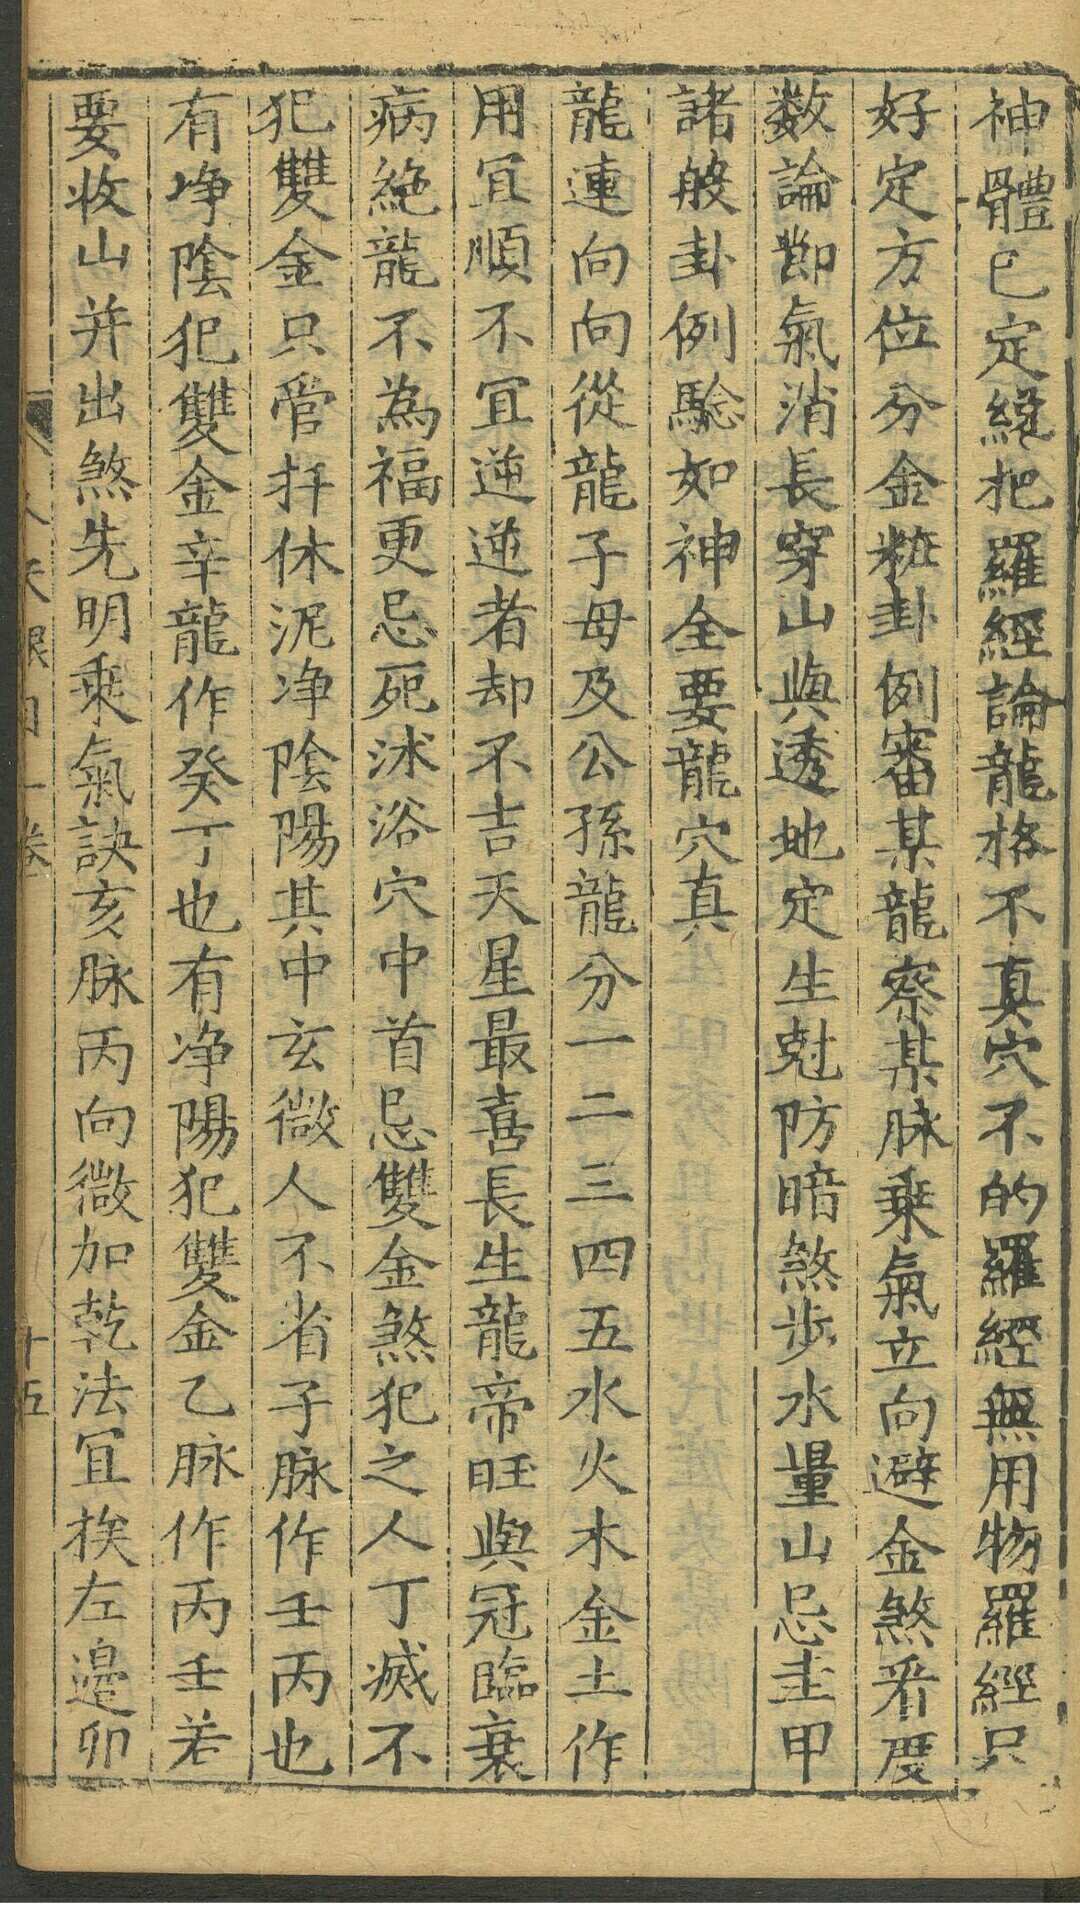 神體已定纔把羅經論龍格不真穴不的羅經無用物羅經只
好定方位分金粧卦例審某龍察某脉乗氣立向避金煞看度
数論節氣消長穿山與透地定生尅防暗煞步水量山忌圭甲
諸般卦例驗如神全要龍穴真
龍連向向從龍子母及公孫龍分一二三四五水火木金土作
用宜順不宜逆逆者却不吉天星最喜長生龍帝旺與冠臨衰
病絶龍不為福更忌死沭浴穴中首忌雙金煞犯之人丁滅不
犯雙金只管扦休泥净陰陽其中玄微人不省子脉作壬丙也
有净陰犯雙金辛龍作癸丁也有净陽犯雙金乙脉作丙壬若
要收山并出煞先明乘氣訣亥脉丙向微加乾法宜挨左邉卯
卷
十五